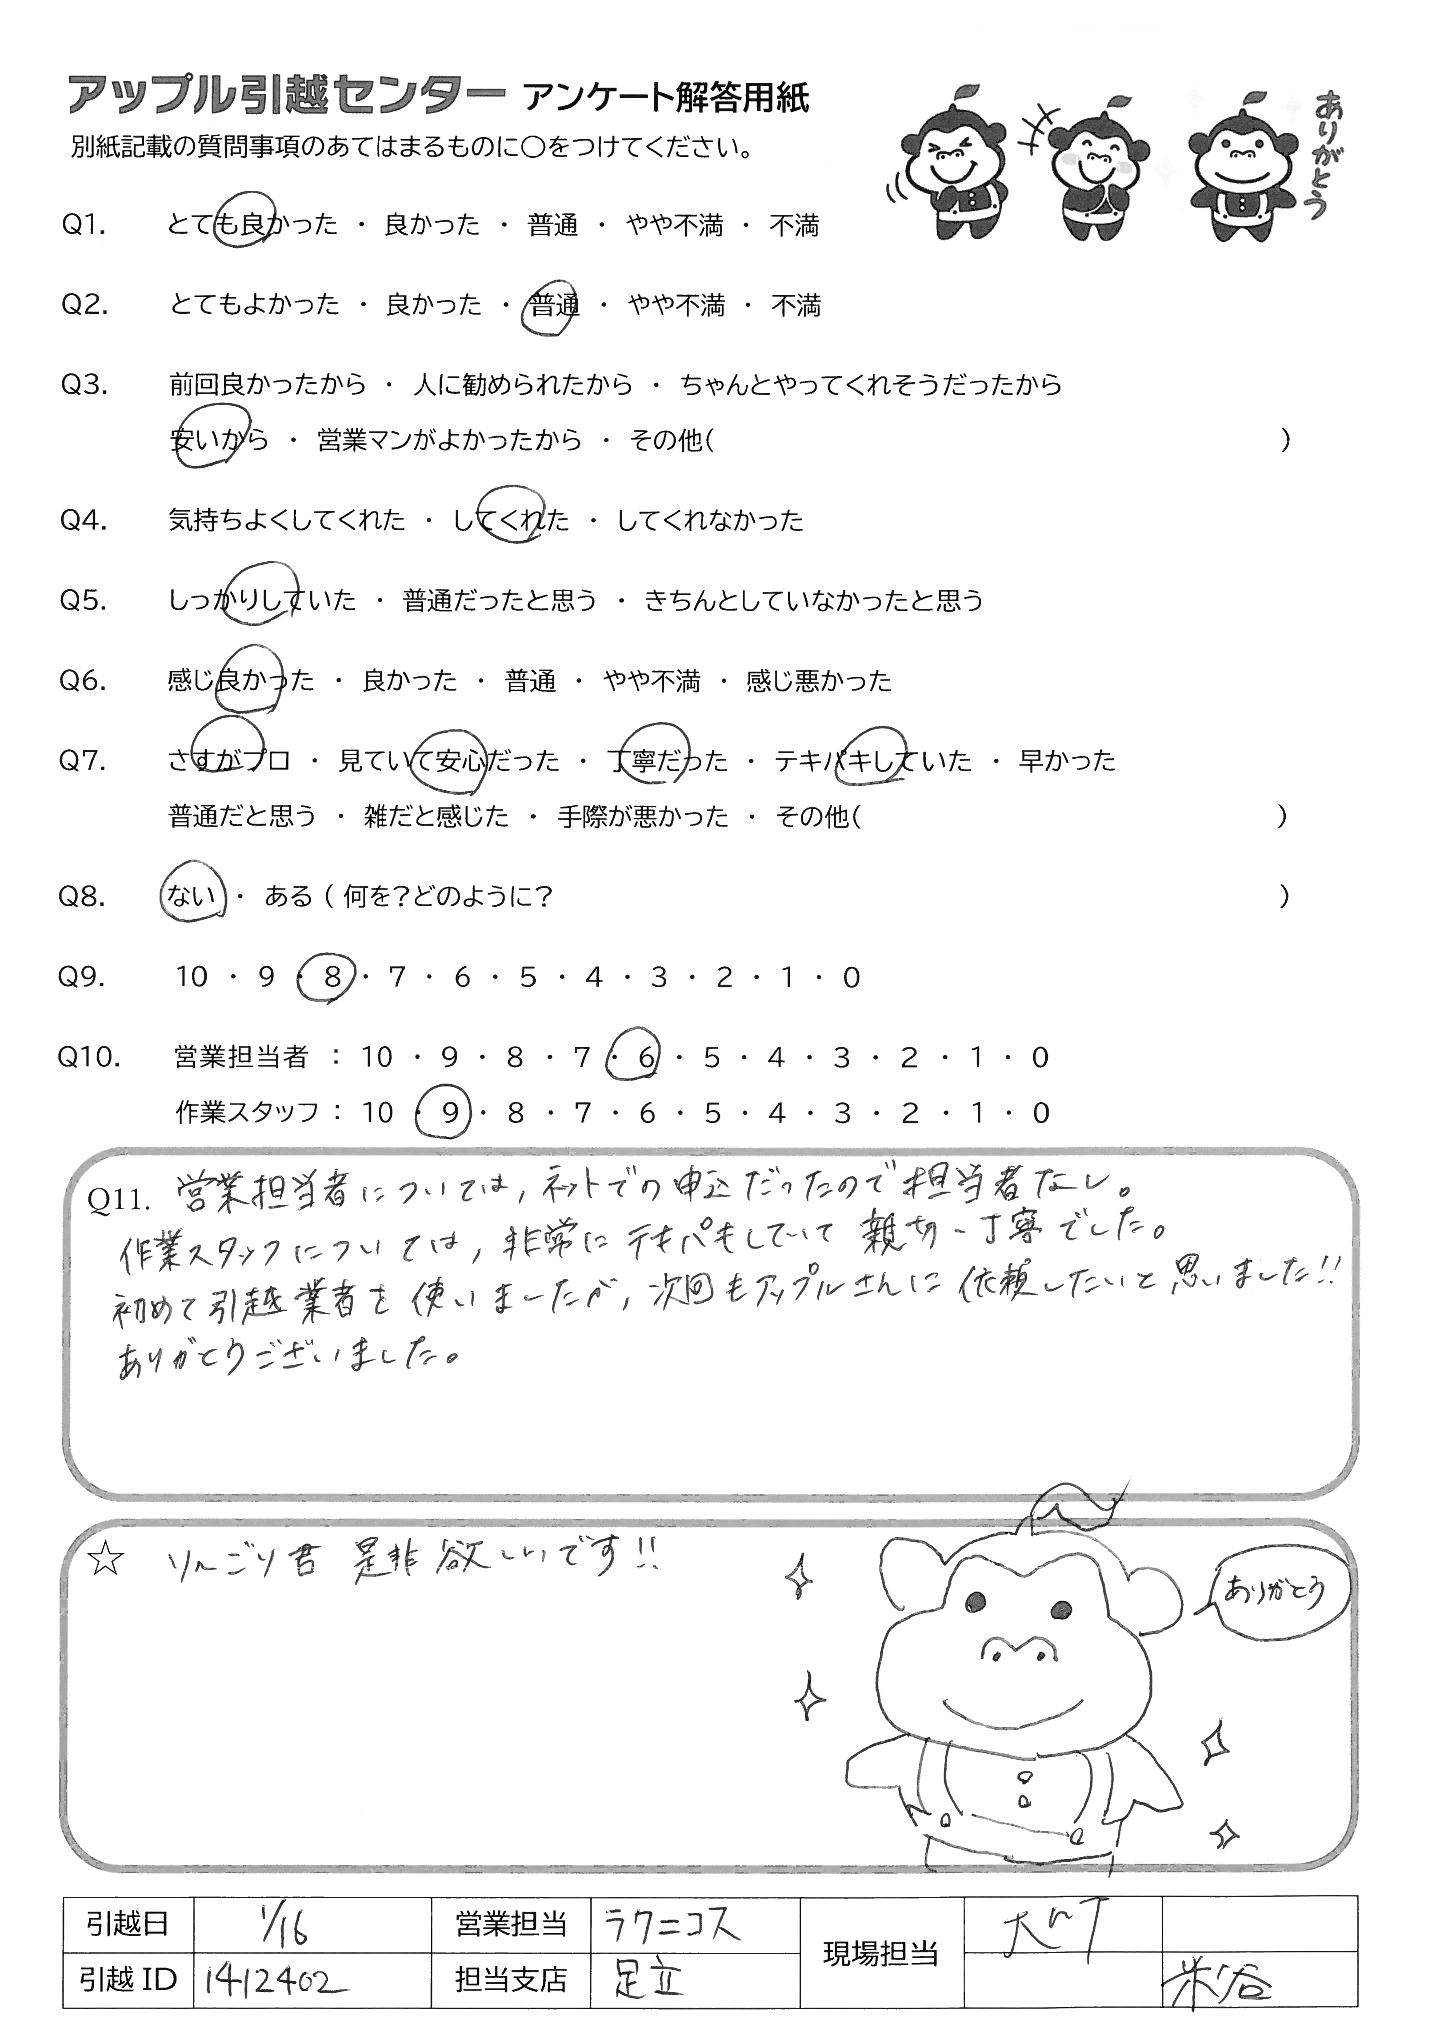 アップル引越センター アンケート解答用紙
ありがとう
別紙記載の質問事項のあてはまるものに○をつけてください。
Q1. とても良かった ・ 良かった ・ 普通 ・ やや不満 ・ 不満
Q2. とてもよかった ・ 良かった ・ 普通 ・ やや不満 ・ 不満
Q3. 前回良かったから ・ 人に勧められたから ・ ちゃんとやってくれそうだったから
安いから ・ 営業マンがよかったから ・ その他( )
Q4. 気持ちよくしてくれた ・ してくれた ・ してくれなかった
Q5. しっかりしていた ・ 普通だったと思う ・ きちんとしていなかったと思う
Q6. 感じ良かった ・ 良かった ・ 普通 ・ やや不満 ・ 感じ悪かった
Q7. さすがプロ ・ 見ていて安心だった ・ 丁寧だった ・ テキパキしていた ・ 早かった
普通だと思う ・ 雑だと感じた ・ 手際が悪かった ・ その他( )
Q8. ない ・ ある ( 何を?どのように? )
Q9. 10 ・ 9 ・ 8 ・ 7 ・ 6 ・ 5 ・ 4 ・ 3 ・ 2 ・ 1 ・ 0
Q10. 営業担当者 : 10 ・ 9 ・ 8 ・ 7 ・ 6 ・ 5 ・ 4 ・ 3 ・ 2 ・ 1 ・ 0
作業スタッフ : 10 ・ 9 ・ 8 ・ 7 ・ 6 ・ 5 ・ 4 ・ 3 ・ 2 ・ 1 ・ 0
Q11. 営業担当者については,ネットでの申込だったので担当者なし。
作業スタッフについては,非常にテキパキしていて親切・丁寧でした。
初めて引越業者を使いましたが,次回もアップルさんに依頼したいと思いました!!
ありがとうございました。
☆ りんごり君 是非欲しいです!!
ありがとう
引越日 1/16 営業担当 ラクニコス 現場担当
引越 ID 1412402 担当支店 足立 米谷